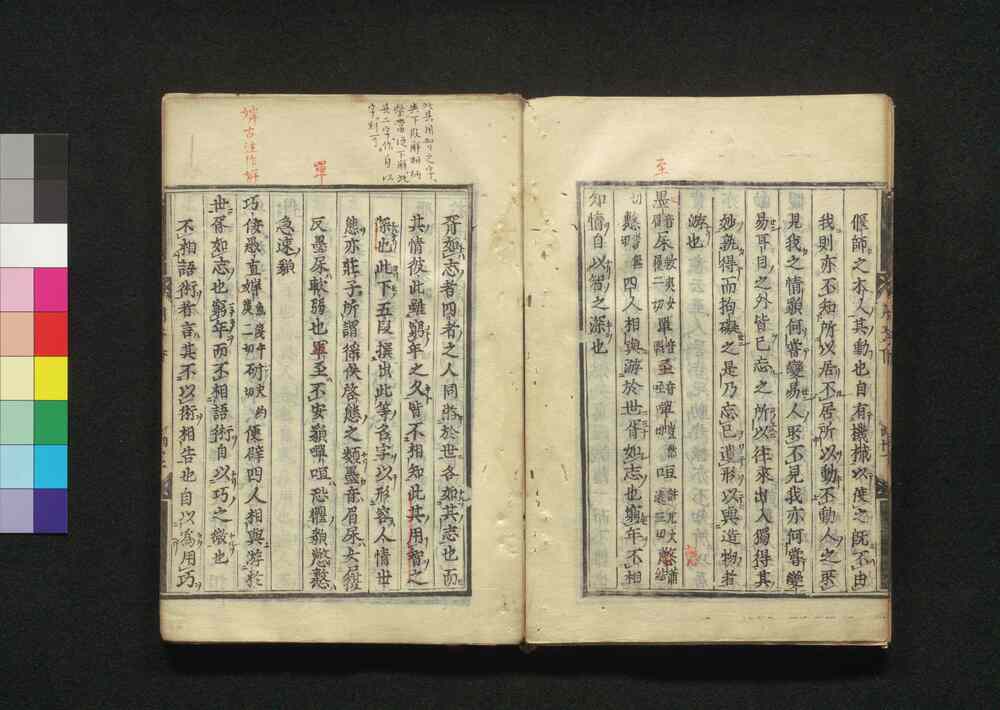 偃師之木人其動也自有機械以使之旣不由
我則亦不知所以居不居所以動不動人之衆
見我之情貌何嘗變易人衆不見我亦何嘗變
易耳目之外皆已忘之所以往來出入獨得其
妙孰得而拘礙之是乃忘己遺形以與造物者
游也
至
墨音眉屎敕夷女履二切單音至音嘽咺許元火遠二切憋
四人相與游於世胥如志也窮年不相
知情自以智之深也
胥如志者四者之人同游於世各如其志也而
其情彼此雖窮年之久皆不相知此其用智之
深也此下五段撰出此等名字以形容人情世
態亦莊子所謂佚啓態之類墨音眉屎女履
單
反墨尿軟弱也單至不安貌嘽咺恐懼貌憋
急速貌
婩古注作
巧佞愚直婩魚踐牛二切斫便辟四人相與游於
世胥如志也窮年而不相語術自以巧之微也
不相語術者言其不以術相告也自以為用巧